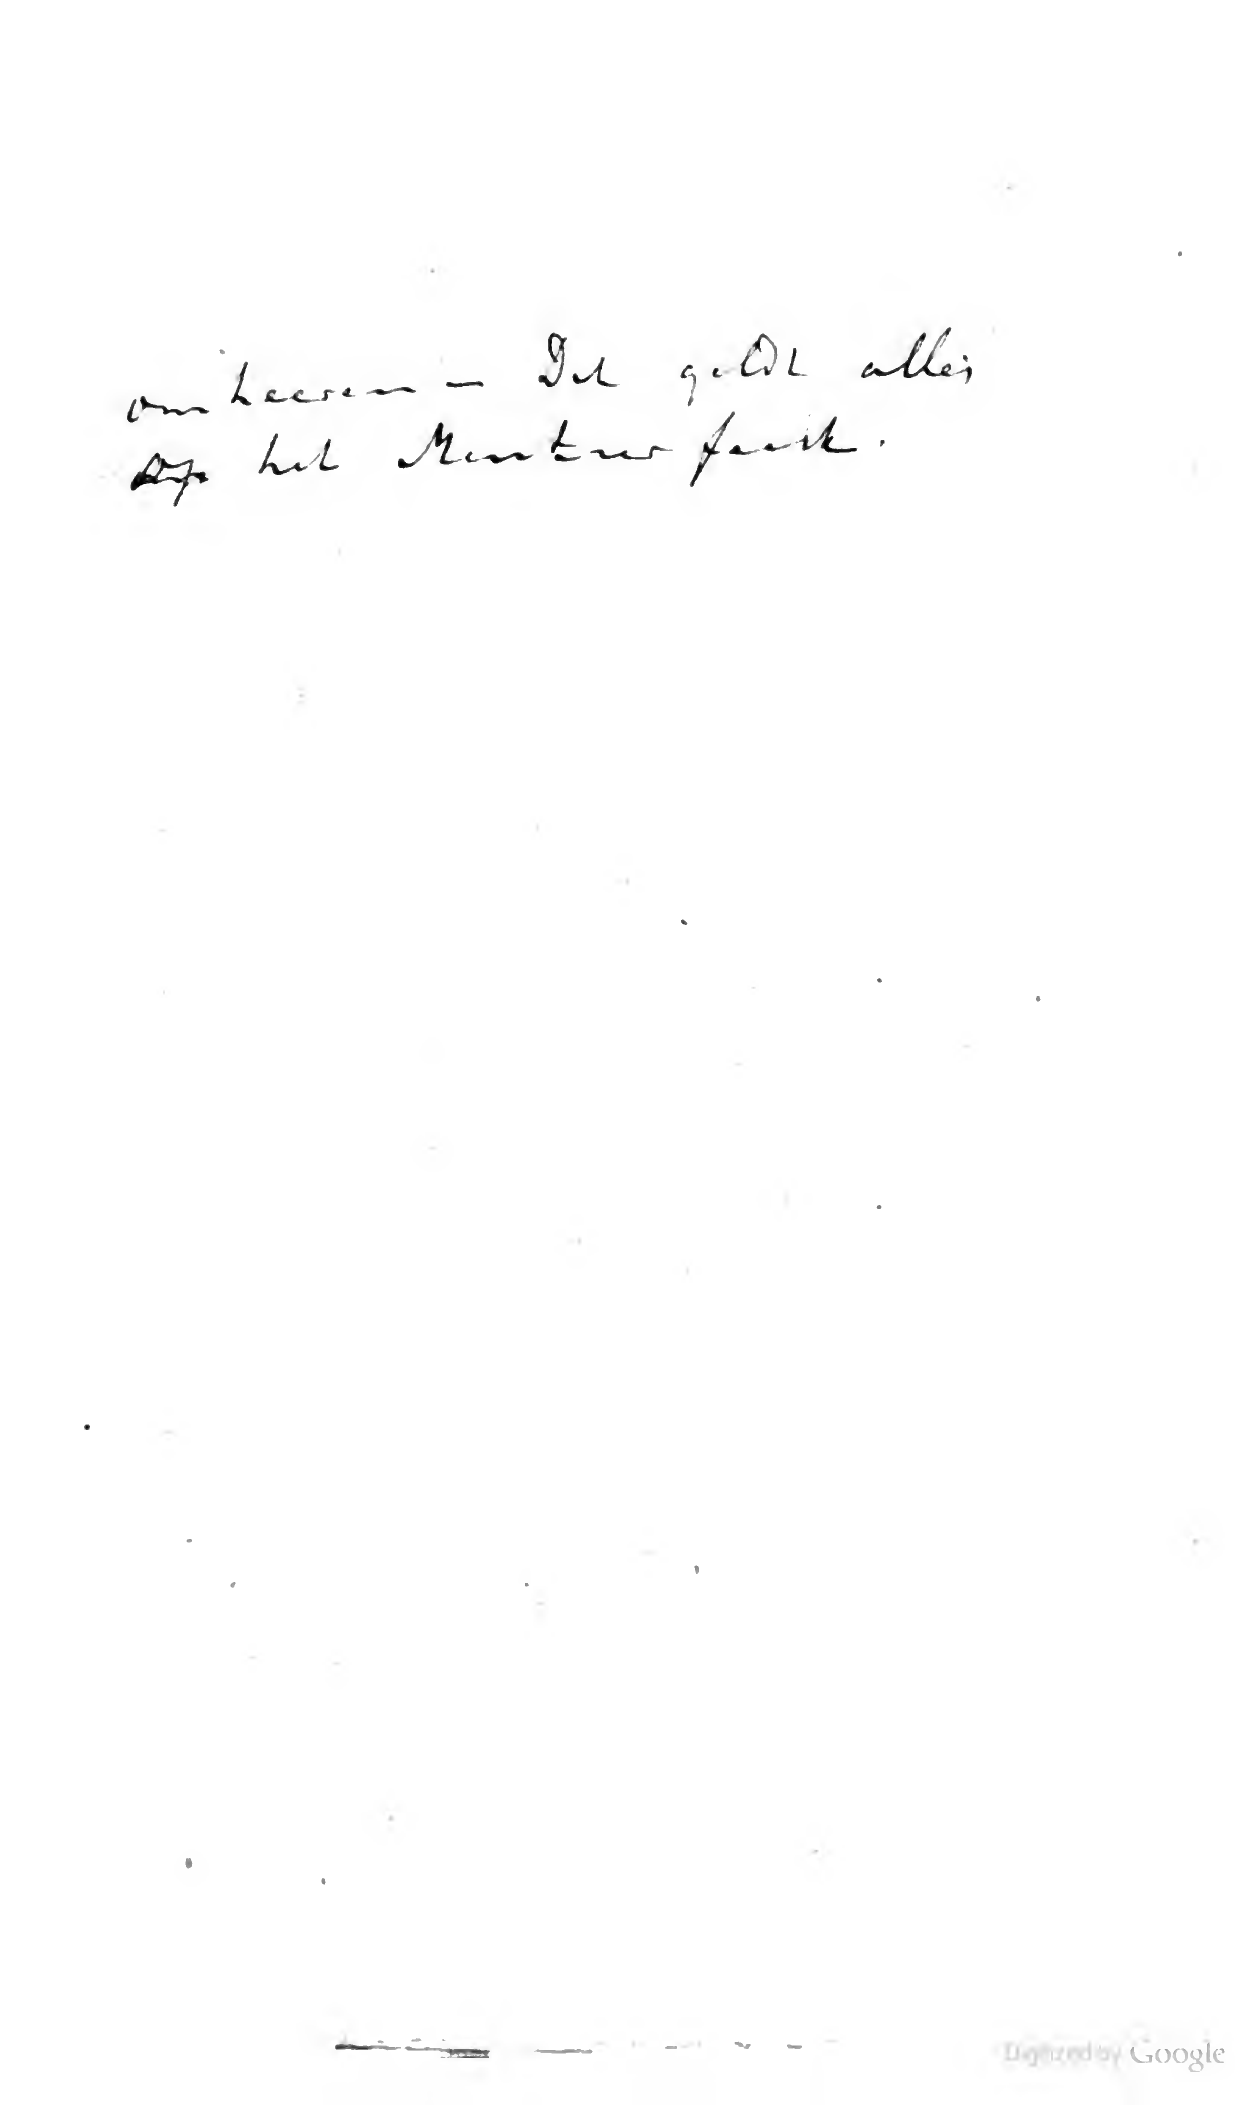 om keeren — Dit geldt alles
op het Munter feest.
Digitized by Google